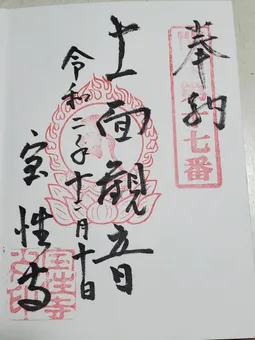 奉納
七番
十一面観音
令和二年十二月十日
宝性寺
宝生寺